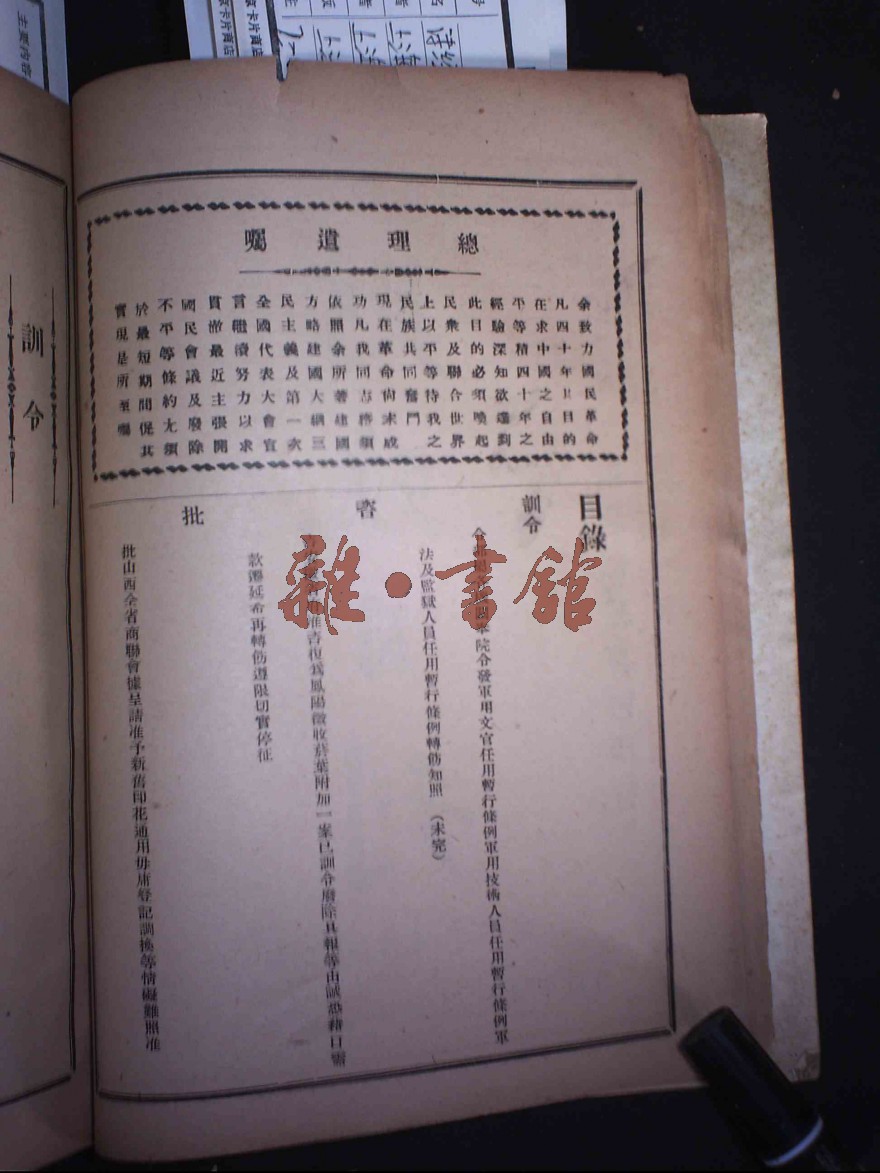 總理遺囑
余致力國民革命
凡四十年其目的
在求中國之自由
平等積四十年之
經驗深知欲達到
此目的必須喚起
民衆及聯合世界
上以平等待我之
民族共同奮鬥
現在革命尚未成
功凡我同志務須
依照余所著建國
方略建國大綱三
民主義及第一次
全國代表大會宣
言繼續努力以求
貫澈最近主張開
國民會議及廢除
不平等條約尤須
於最短期間促其
實現是所至囑
目錄
訓令
院令發軍用文官任用暫行條例軍用技術人員任用暫行條例軍
法及監獄人員任用暫行條例轉飭知照（未完）
咨
准咨復爲鳳陽徵收菸葉附加一案已訓令廢除具報等由誠恐藉口需
款遷延希再轉飭遵限切實停征
批
批山西全省商聯會據呈請准予新舊印花通用毋庸登記調換等情礙難照准
訓令
雜·書館